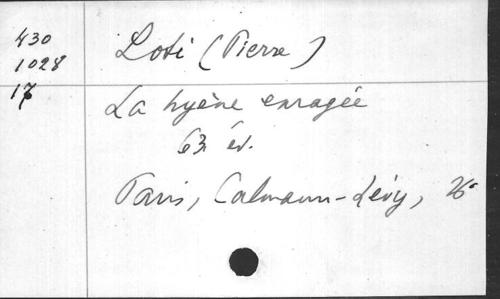 430
1028
17
Loti (Pierre)
La hyène enragée
63 éd.
Paris, Calmann-Lévy,